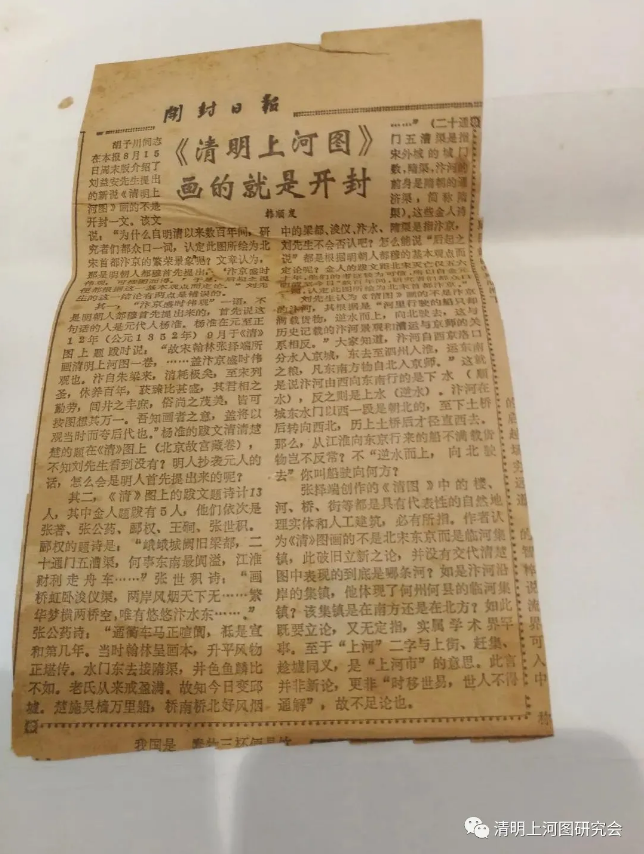 開封日報
《清明上河图》
画的就是开封
韩顺发
胡子川同志
在本报8月15
日周末版介绍了
刘益安先生提出
的新说《清明上
河图》画的不是
开封一文。该文
说：“为什么自明清以来数百年间，研
究者们都众口一词，认定此图所绘为北
宋首都汴京的繁荣景象呢？文章认为，
那是明朝人都穆首先提出，“汴京盛时
生的这一结论有两点是错误的。
其一，“汴京盛时伟观”一语，不
是明朝人都穆首先提出来的，首先说这
句话的人是元代人杨准。杨准在元至正
12年（公元1352年）9月于《清》
图上题跋时说：“故宋翰林张择端所
画清明上河图一卷，……盖汴京盛时伟
观也。汴自朱梁来，消耗极矣，至宋列
圣，休养百年，获臻比甚盛，其君相之
勤劳，闾井之丰庶，俗尚之茂美，皆可
按图想其万一。吾知画者之意，盖将以
观当时而夸后代也。”杨准的跋文清清楚
楚的题在《清》图上（北京故宫藏卷），
不知刘先生看到没有？明人抄袭元人的
话，怎么会是明人首先提出来的呢？
其二，《清》图上的跋文题诗计13
人，其中金人题跋有5人，他们依次是
张著、张公药、郦权、王磵、张世积。
郦权的题诗是：“峨峨城阙旧梁都，二
十通门五漕渠，何事东南最阗溢，江淮
财利走舟车……”张世积诗：“画
桥虹卧浚仪渠，两岸风烟天下无……繁
华梦横两桥空，唯有悠悠汴水东……。”
张公药诗：“通衢车马正喧阗，祗是宣
和第几年。当时翰林呈画本，升平风物
正堪传。水门东去接隋渠，井邑鱼鳞比
不如。老氏从来戒盈满。故知今日变邱
墟。楚施吴樯万里船，桥南桥北好风烟
……”（二十通
门五漕渠是指
宋外城的城门
数，隋渠，汴河的
前身是隋朝的通
济渠，简称隋
渠），这些金人诗
中的梁都、浚仪、汴水、隋渠是指汴京，
刘先生不会否认吧？怎么能说“后起之
说”都是根据明朝人都穆的基本观点而
定论呢？
刘先生认为《清图》画的不是汴京
的汴河，其根据是“河里行驶的船只却
满载货物，逆水而上，向北驶去，这与
历史记载的汴河景观和漕运与京师的关
系相反。”大家知道，汴河自西京洛口
分水入京城，东去至泗州入淮，运东南
之粮，凡东南方物自北入京师。”这就
是说汴河由西向东南行的是下水（顺
水），反之则是上水（逆水）。汴河在
城东水门以西一段是朝北的，至下土桥
后转向西北，历上土桥后才径直西去。
那么，从江淮向东京行来的船不满载货
物岂不反常？不“逆水而上，向北驶
去”你叫船驶向何方？
张择端创作的《清图》中的楼、
河、桥、街等都是具有代表性的自然地
理实体和人工建筑，必有所指。作者认
为《清》图画的不是北宋东京而是临河集
镇，此破旧立新之论，并没有交代清楚
图中表现的到底是哪条河？如是汴河沿
岸的集镇，他体现了何州何县的临河集
镇？该集镇是在南方还是在北方？如此
既要立论，又无定指，实属学术界平
事。至于“上河”二字与上街、赶集、
趁墟同义，是“上河市”的意思。此言
并非新论，更非“时移世易，世人不得
通解”，故不足论也。
清明上河图研究会